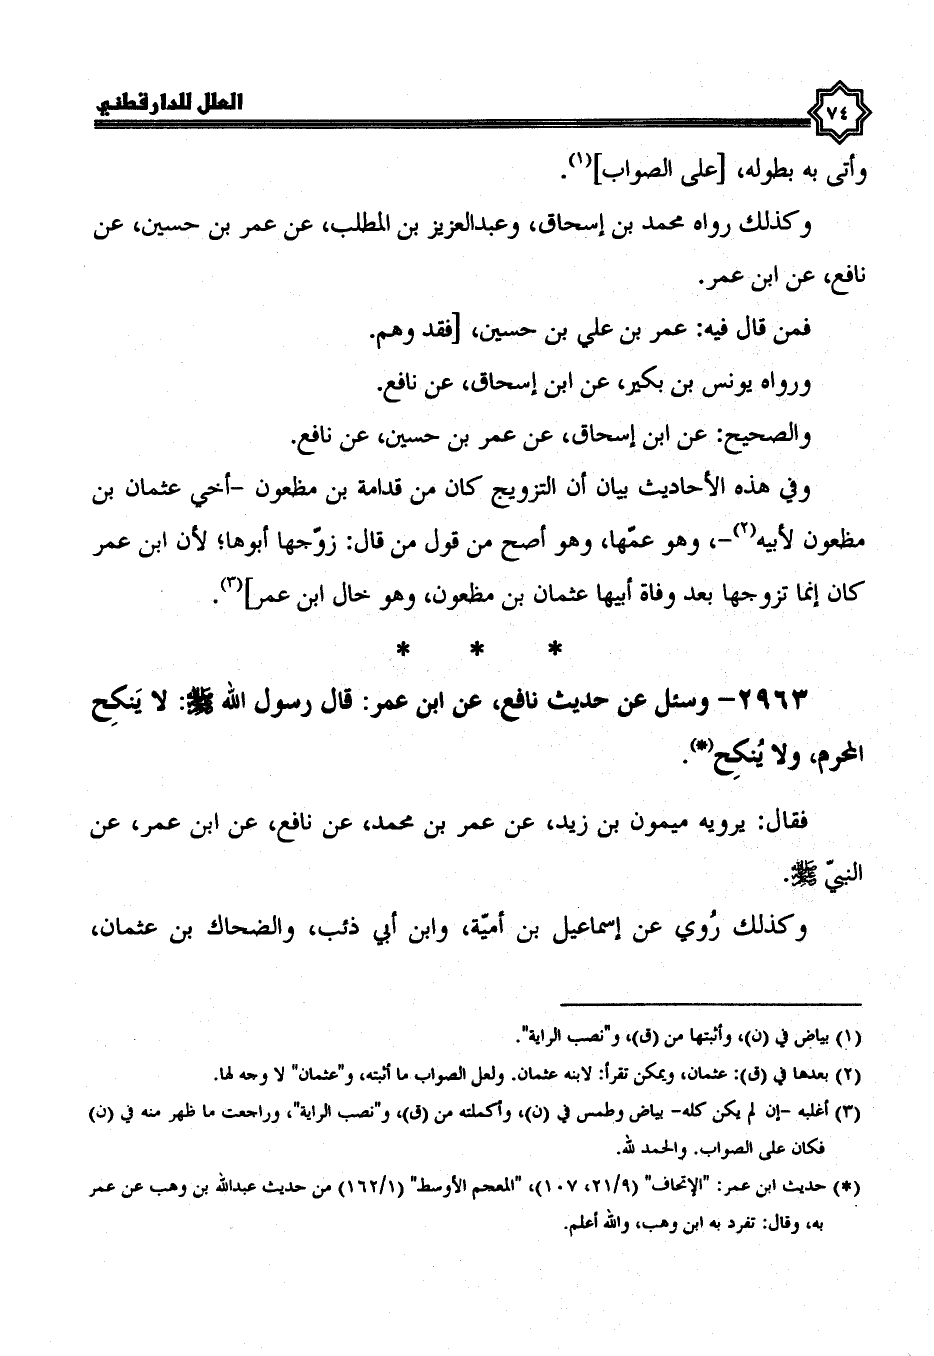 ٧٤
العلل للدارقطني
وأتى به بطوله، [على الصواب](١).
وكذلك رواه محمد بن إسحاق، وعبدالعزيز بن المطلب، عن عمر بن حسين، عن
نافع، عن ابن عمر.
فمن قال فيه: عمر بن علي بن حسين، [فقد وهم.
ورواه يونس بن بكير، عن ابن إسحاق، عن نافع.
والصحيح: عن ابن إسحاق، عن عمر بن حسين، عن نافع.
وفي هذه الأحاديث بيان أن التزويج كان من قدامة بن مظعون -أخي عثمان بن
مظعون لأبيه(٢)-، وهو عمّها، وهو أصح من قول من قال: زوّجها أبوها؛ لأن ابن عمر
كان إنما تزوجها بعد وفاة أبيها عثمان بن مظعون، وهو خال ابن عمر](٣).
* * *
٢٩٦٣- وسئل عن حديث نافع، عن ابن عمر: قال رسول الله ﷺ: لا يَنكِح
المحرم، ولا يُنكِح(*).
فقال: يرويه ميمون بن زيد، عن عمر بن محمد، عن نافع، عن ابن عمر، عن
النبيّ ﷺ.
وكذلك رُوي عن إسماعيل بن أميّة، وابن أبي ذئب، والضحاك بن عثمان،
(١) بياض في (ن)، وأثبتها من (ق)، و"نصب الراية".
(٢) بعدها في (ق): عثمان، ويمكن تقرأ: لابنه عثمان. ولعل الصواب ما أثبته، و"عثمان" لا وجه لها.
(٣) أغلبه -إن لم يكن كله- بياض وطمس في (ن)، وأكملته من (ق)، و"نصب الراية"، وراجعت ما ظهر منه في (ن)
فكان على الصواب. والحمد لله.
(*) حديث ابن عمر: "الإتحاف" (٢١/٩، ١٠٧)، "المعجم الأوسط" (١٦٢/١) من حديث عبدالله بن وهب عن عمر
به، وقال: تفرد به ابن وهب، والله أعلم.